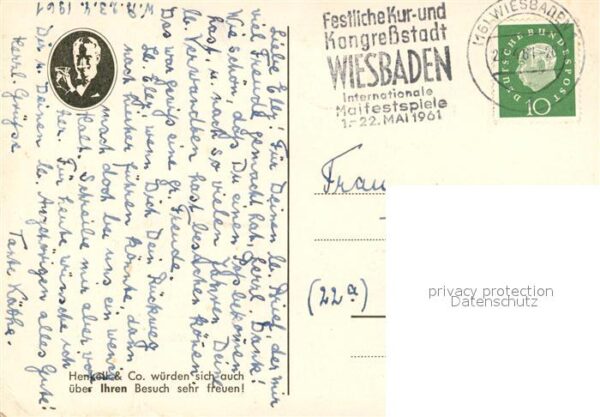 W.B. 23.4.1961
Liebe Elly! Für Deinen lb. Brief, der mir
viel Freude gemacht hat, herzl. Dank!
Wie schön, dass Du einen Pass bekommen
hast, u. nach so vielen Jahren Deine
lb. Verwandten hast besuchen können
Das war gewiss eine gr. Freude.
Lb. Elly! wenn Dich Dein Rückweg
nach hierher führen könnte, dann
mach doch bei uns ein wenig
Rast. Schreibe mir aber vor-
her. Für heute wünsche ich
Dir u. Deinen lb. Angehörigen alles Gute!
Herzl. Grüsse Tante Käthe.
Henkell & Co. würden sich auch
über Ihren Besuch sehr freuen!
Festliche Kur- und
Kongreßstadt
WIESBADEN
Internationale
Maifestspiele
1.-22. MAI 1961
(16) WIESBADEN
DEUTSCHE BUNDESPOST
10
Frau
(22a)
privacy protection
Datenschutz